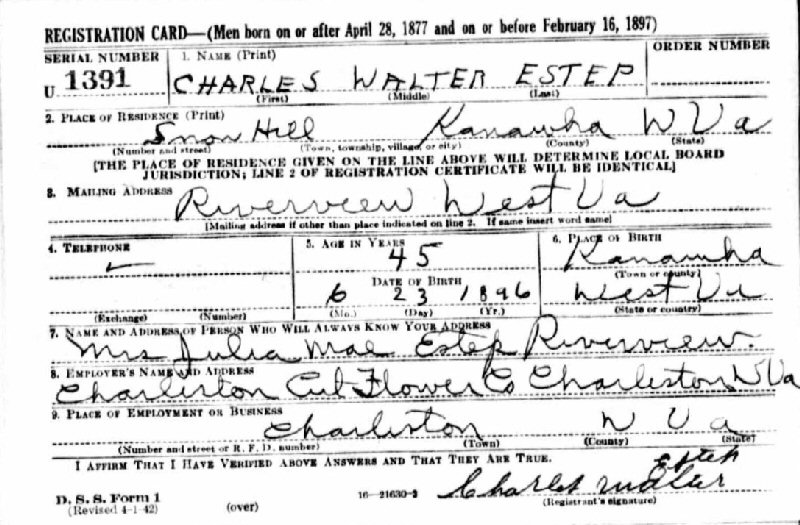 REGISTRATION CARD—(Men born on or after April 28, 1877 and on or before February 16, 1897)
SERIAL NUMBER 1. NAME (Print) ORDER NUMBER
U 1391 CHARLES WALTER ESTEP
(First) (Middle) (Last)
2. PLACE OF RESIDENCE (Print)
Snow Hill Kanawha W Va
(Number and street) (Town, township, village, or city) (County) (State)
[THE PLACE OF RESIDENCE GIVEN ON THE LINE ABOVE WILL DETERMINE LOCAL BOARD
JURISDICTION; LINE 2 OF REGISTRATION CERTIFICATE WILL BE IDENTICAL]
3. MAILING ADDRESS
Riverview West Va
[Mailing address if other than place indicated on line 2. If same insert word same]
4. TELEPHONE 5. AGE IN YEARS 6. PLACE OF BIRTH
45 Kanawha
DATE OF BIRTH (Town or county)
6 23 1896 West Va
(Exchange) (Number) (Mo.) (Day) (Yr.) (State or country)
7. NAME AND ADDRESS OF PERSON WHO WILL ALWAYS KNOW YOUR ADDRESS
Mrs Julia Mae Estep Riverview.
8. EMPLOYER'S NAME AND ADDRESS
Charleston Cut Flower Co Charleston W Va
9. PLACE OF EMPLOYMENT OR BUSINESS
Charleston W Va
(Number and street or R. F. D. number) (Town) (County) (State)
I AFFIRM THAT I HAVE VERIFIED ABOVE ANSWERS AND THAT THEY ARE TRUE.
Estep
D. S. S. Form 1 16—21630-2 Charles Walter
(Revised 4-1-42) (over) (Registrant's signature)